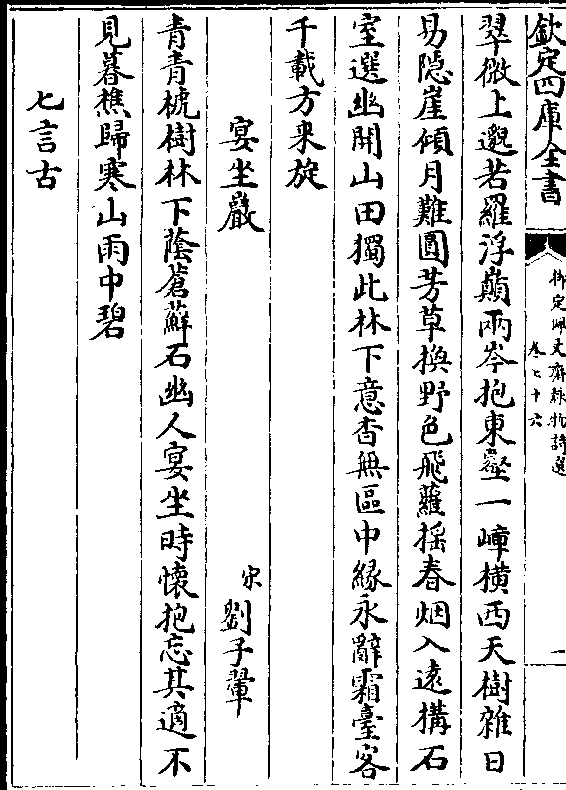 欽定四庫全書
御定佩文齋詠物詩選
卷七十六
一
翠微上邈若羅浮巔兩岑抱東壑一嶂橫西天樹雜日
易隱崖傾月難圓芳草換野色飛蘿揺春烟入逺搆石
室選幽開山田獨此林下意杳無區中緣永辭霜臺客
千載方來旋
宴坐巖
宋劉子翬
青青槐樹林下蔭蒼蘚石幽人宴坐時懐抱忘其適不
見暮樵歸寒山雨中碧
七言古